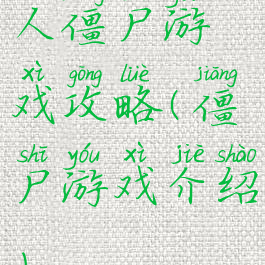 人僵尸游
xì gōng lüè jiāng
戏攻略(僵
shī yóu xì jiè shào
尸游戏介绍
)